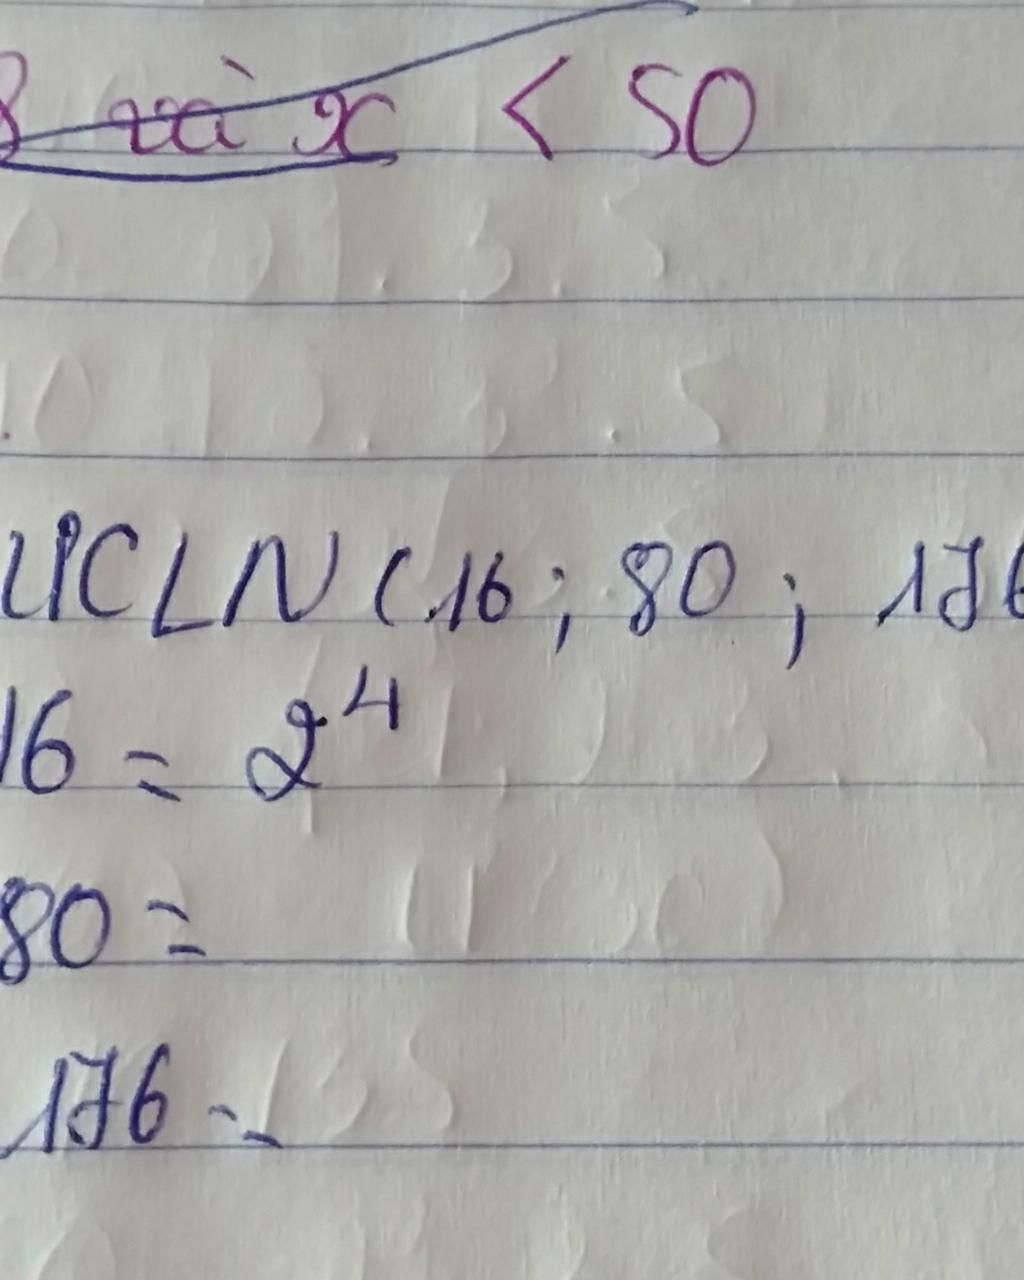 8 và x < 50
ƯCLN (16 ; 80 ; 176
16 = 2⁴
80 =
176 =